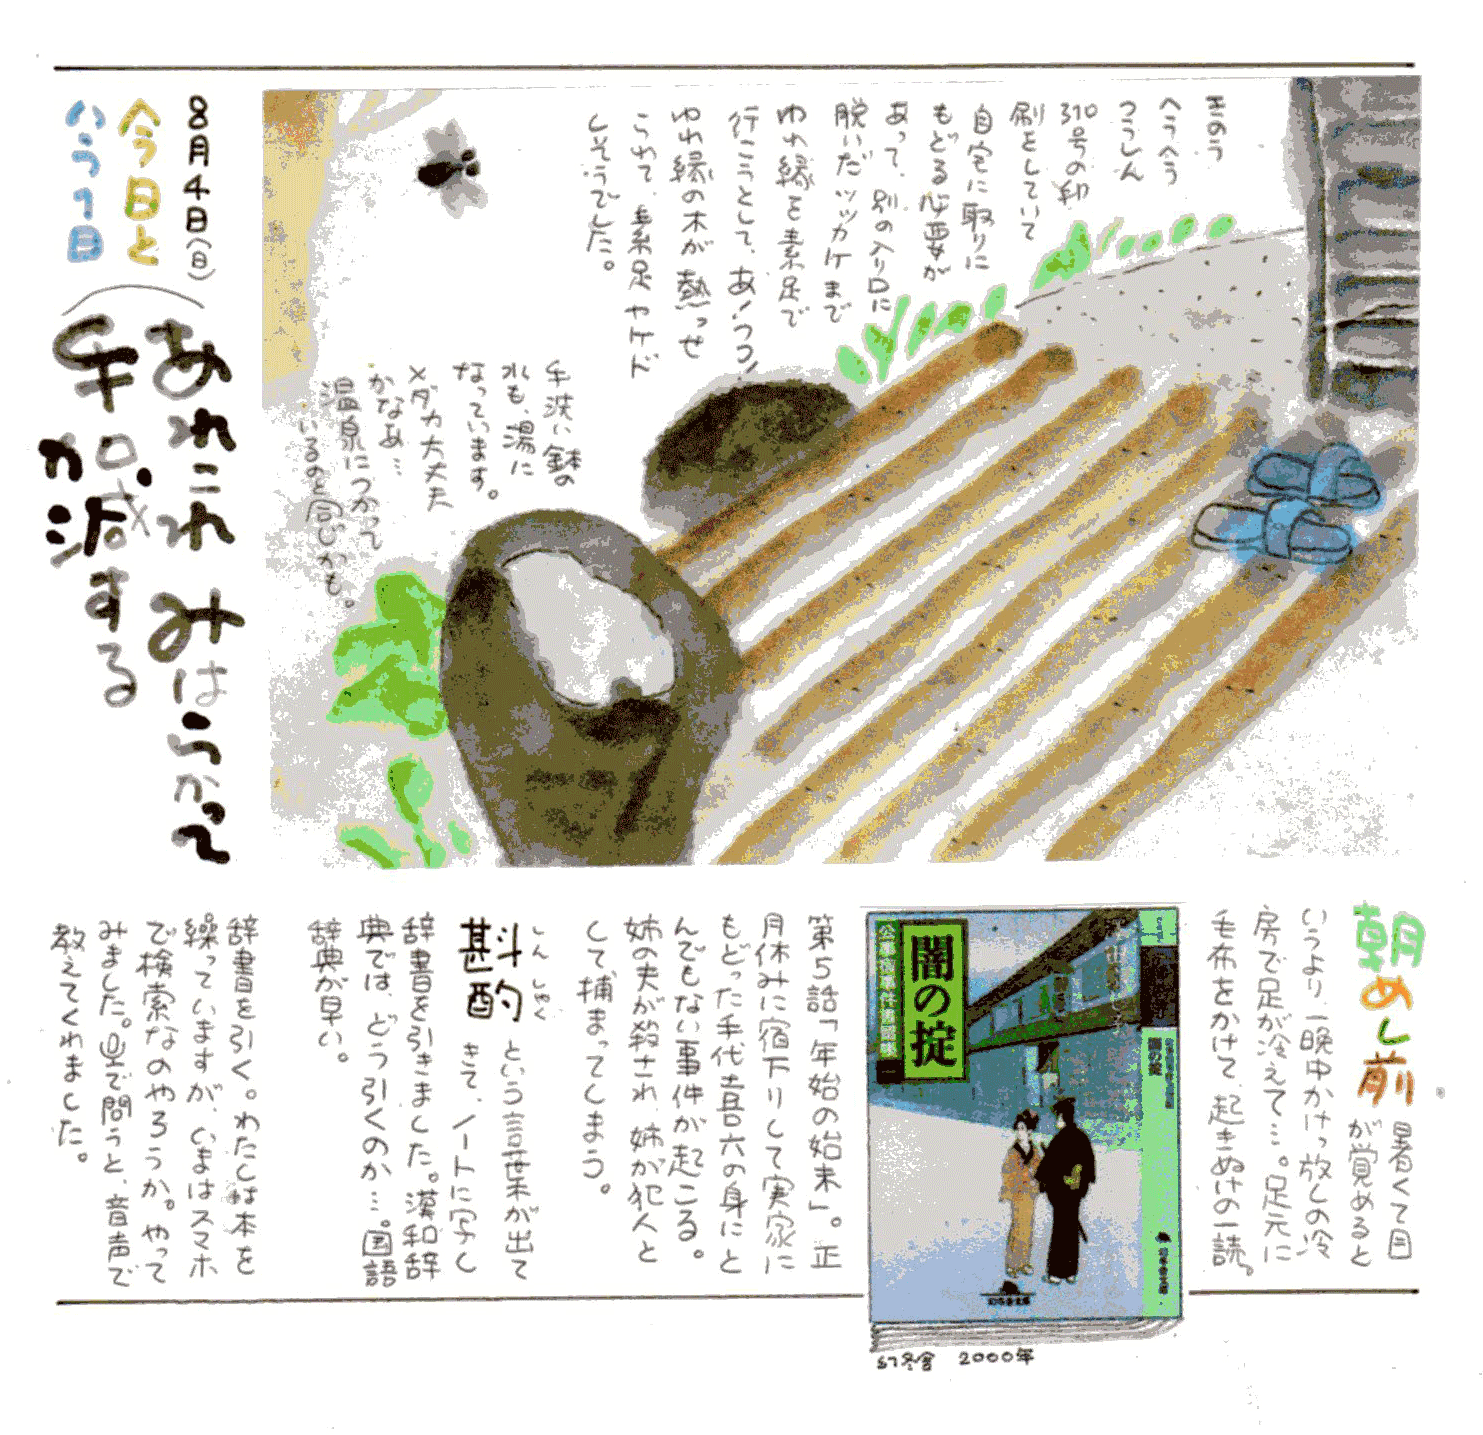 8月4日(日)
今日と
ハラ1日
あれこれ みはらかって
手加減する
きのう
へうへう
つうしん
310号の印
刷をしていて
自宅に取りに
もどる必要が
あって、別の入り口に
脱いだツッカケまで
ぬれ縁を素足で
行こうとして、あ!つつ!
ぬれ縁の木が熱っせ
られて、素足ヤケド
しそうでした。
手洗い鉢の
水も、湯に
なっています。
メダカ大丈夫
かなあ…
温泉につかって
いるのと同じかも。
朝めし前
暑くて目
が覚めると
いうより、一晩中かけっ放しの冷
房で足が冷えて…。足元に
毛布をかけて、起きぬけの一読。
闇の掟
公事宿事件書留帳 一
闇の掟
幻冬舎文庫
幻冬舎 2000年
第5話「年始の始末」。正
月休みに宿下りして実家に
もどった手代喜六の身にと
んでもない事件が起こる。
姉の夫が殺され、姉が犯人と
して捕まってしまう。
しんしゃく
斟酌 という言葉が出て
きて、ノートに写し
辞書を引きました。漢和辞
典では、どう引くのか…。国語
辞典が早い。
辞書を引く。わたしは本を
繰っていますが、いまはスマホ
で検索なのやろうか。やって
みました。声で問うと、音声で
教えてくれました。